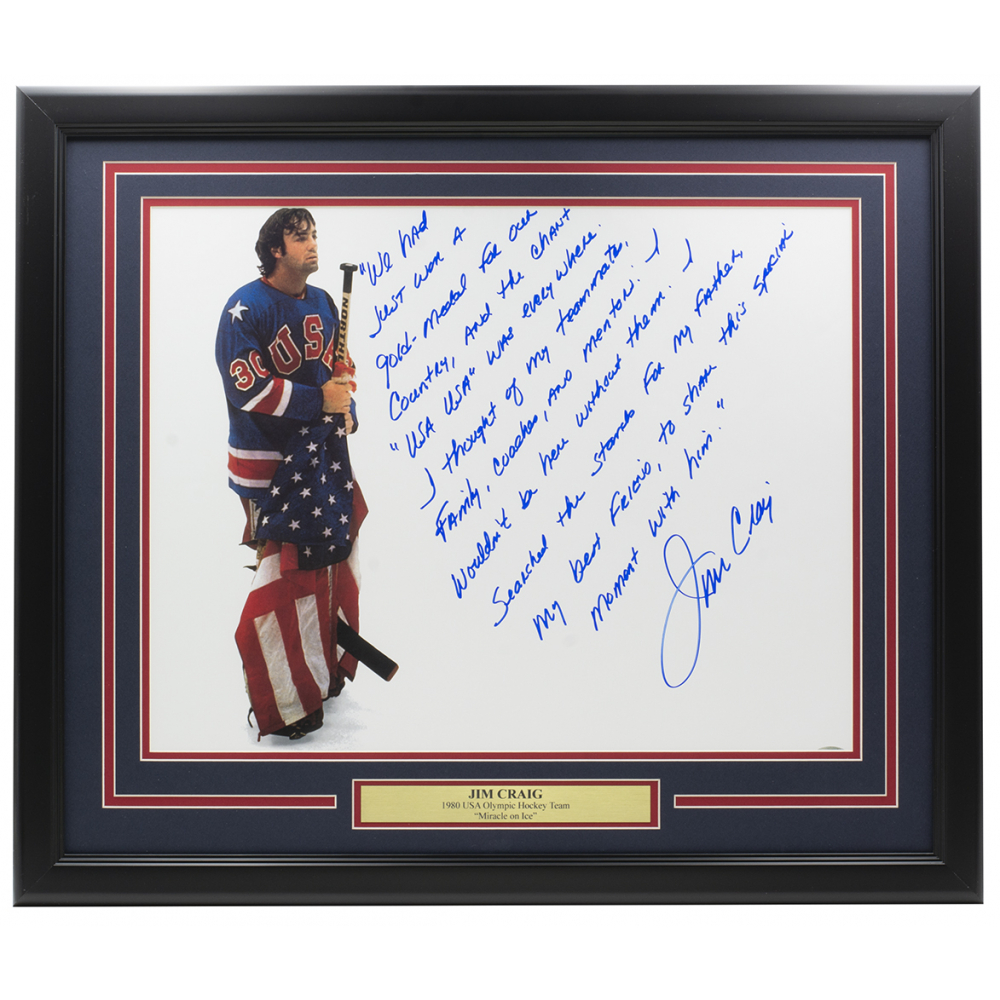 "We had
just won a
gold-medal for our
Country, and the chant
"USA USA" was everywhere.
I thought of my teammates,
Family, coaches, and mentors. I
wouldn't be here without them. I
searched the stands for my father,
my best friend, to share this special
moment with him."
Jim Craig
30 USA
NORTH
JIM CRAIG
1980 USA Olympic Hockey Team
"Miracle on Ice"